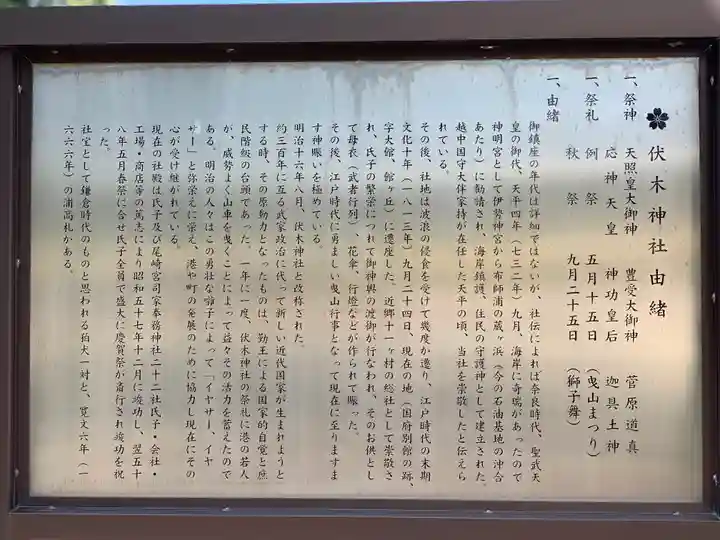 伏木神社由緒
一、祭神　天照皇大御神　豊受大御神　菅原道真
応神天皇　神功皇后　迦具土神
一、祭礼　例祭　五月十五日（曳山まつり）
秋祭　九月二十五日（獅子舞）
一、由緒
御鎮座の年代は詳細ではないが、社伝によれば奈良時代、聖武天
皇の御代、天平四年（七三二年）九月、海岸に奇瑞があったので
神明宮として伊勢神宮から布師浦の蔵ヶ浜（今の石油基地の沖合
あたり）に勧請され、海岸鎮護、住民の守護神として建立された。
越中国守大伴家持が在任した天平の頃、当社を崇敬したと伝えら
れている。
その後、社地は波浪の侵食を受けて幾度か遷り、江戸時代の末期
文化十年（一八一三年）九月二十四日、現在の地（国府別館の跡、
字大館、館ヶ丘）に遷座した。近郷十一ヶ村の総社として崇敬さ
れ、氏子の繁栄につれて御神輿の渡御が行なわれ、そのお供とし
て母衣（武者行列）、花傘、行燈などが作られて賑った。
その後、江戸時代に勇ましい曳山行事となって現在に至りますま
す神賑いを極めている。
明治十六年八月、伏木神社と改称された。
約三百年に亙る武家政治に代って新しい近代国家が生まれようと
する時、その原動力となったものは、勤王による国家的自覚と庶
民階級の台頭であった。一年に一度、伏木神社の祭礼に港の若人
が、威勢よく山車を曳くことによって益々その活力を蓄えたので
ある。明治の人々はこの勇壮な囃子によって「イヤサー、イヤ
サー」と弥栄えに栄え、港や町の発展のために協力し現在にその
心が受け継がれている。
現在の社殿は氏子及び尾崎宮司家奉務神社二十二社氏子・会社・
工場・商店等の篤志により昭和五十七年十二月に竣功し、翌五十
八年五月春祭に合せ氏子全員で盛大に慶賀祭が斎行され竣功を祝
った。
社宝として鎌倉時代のものと思われる狛犬一対と、寛文六年（一
六六六年）の浦高札がある。